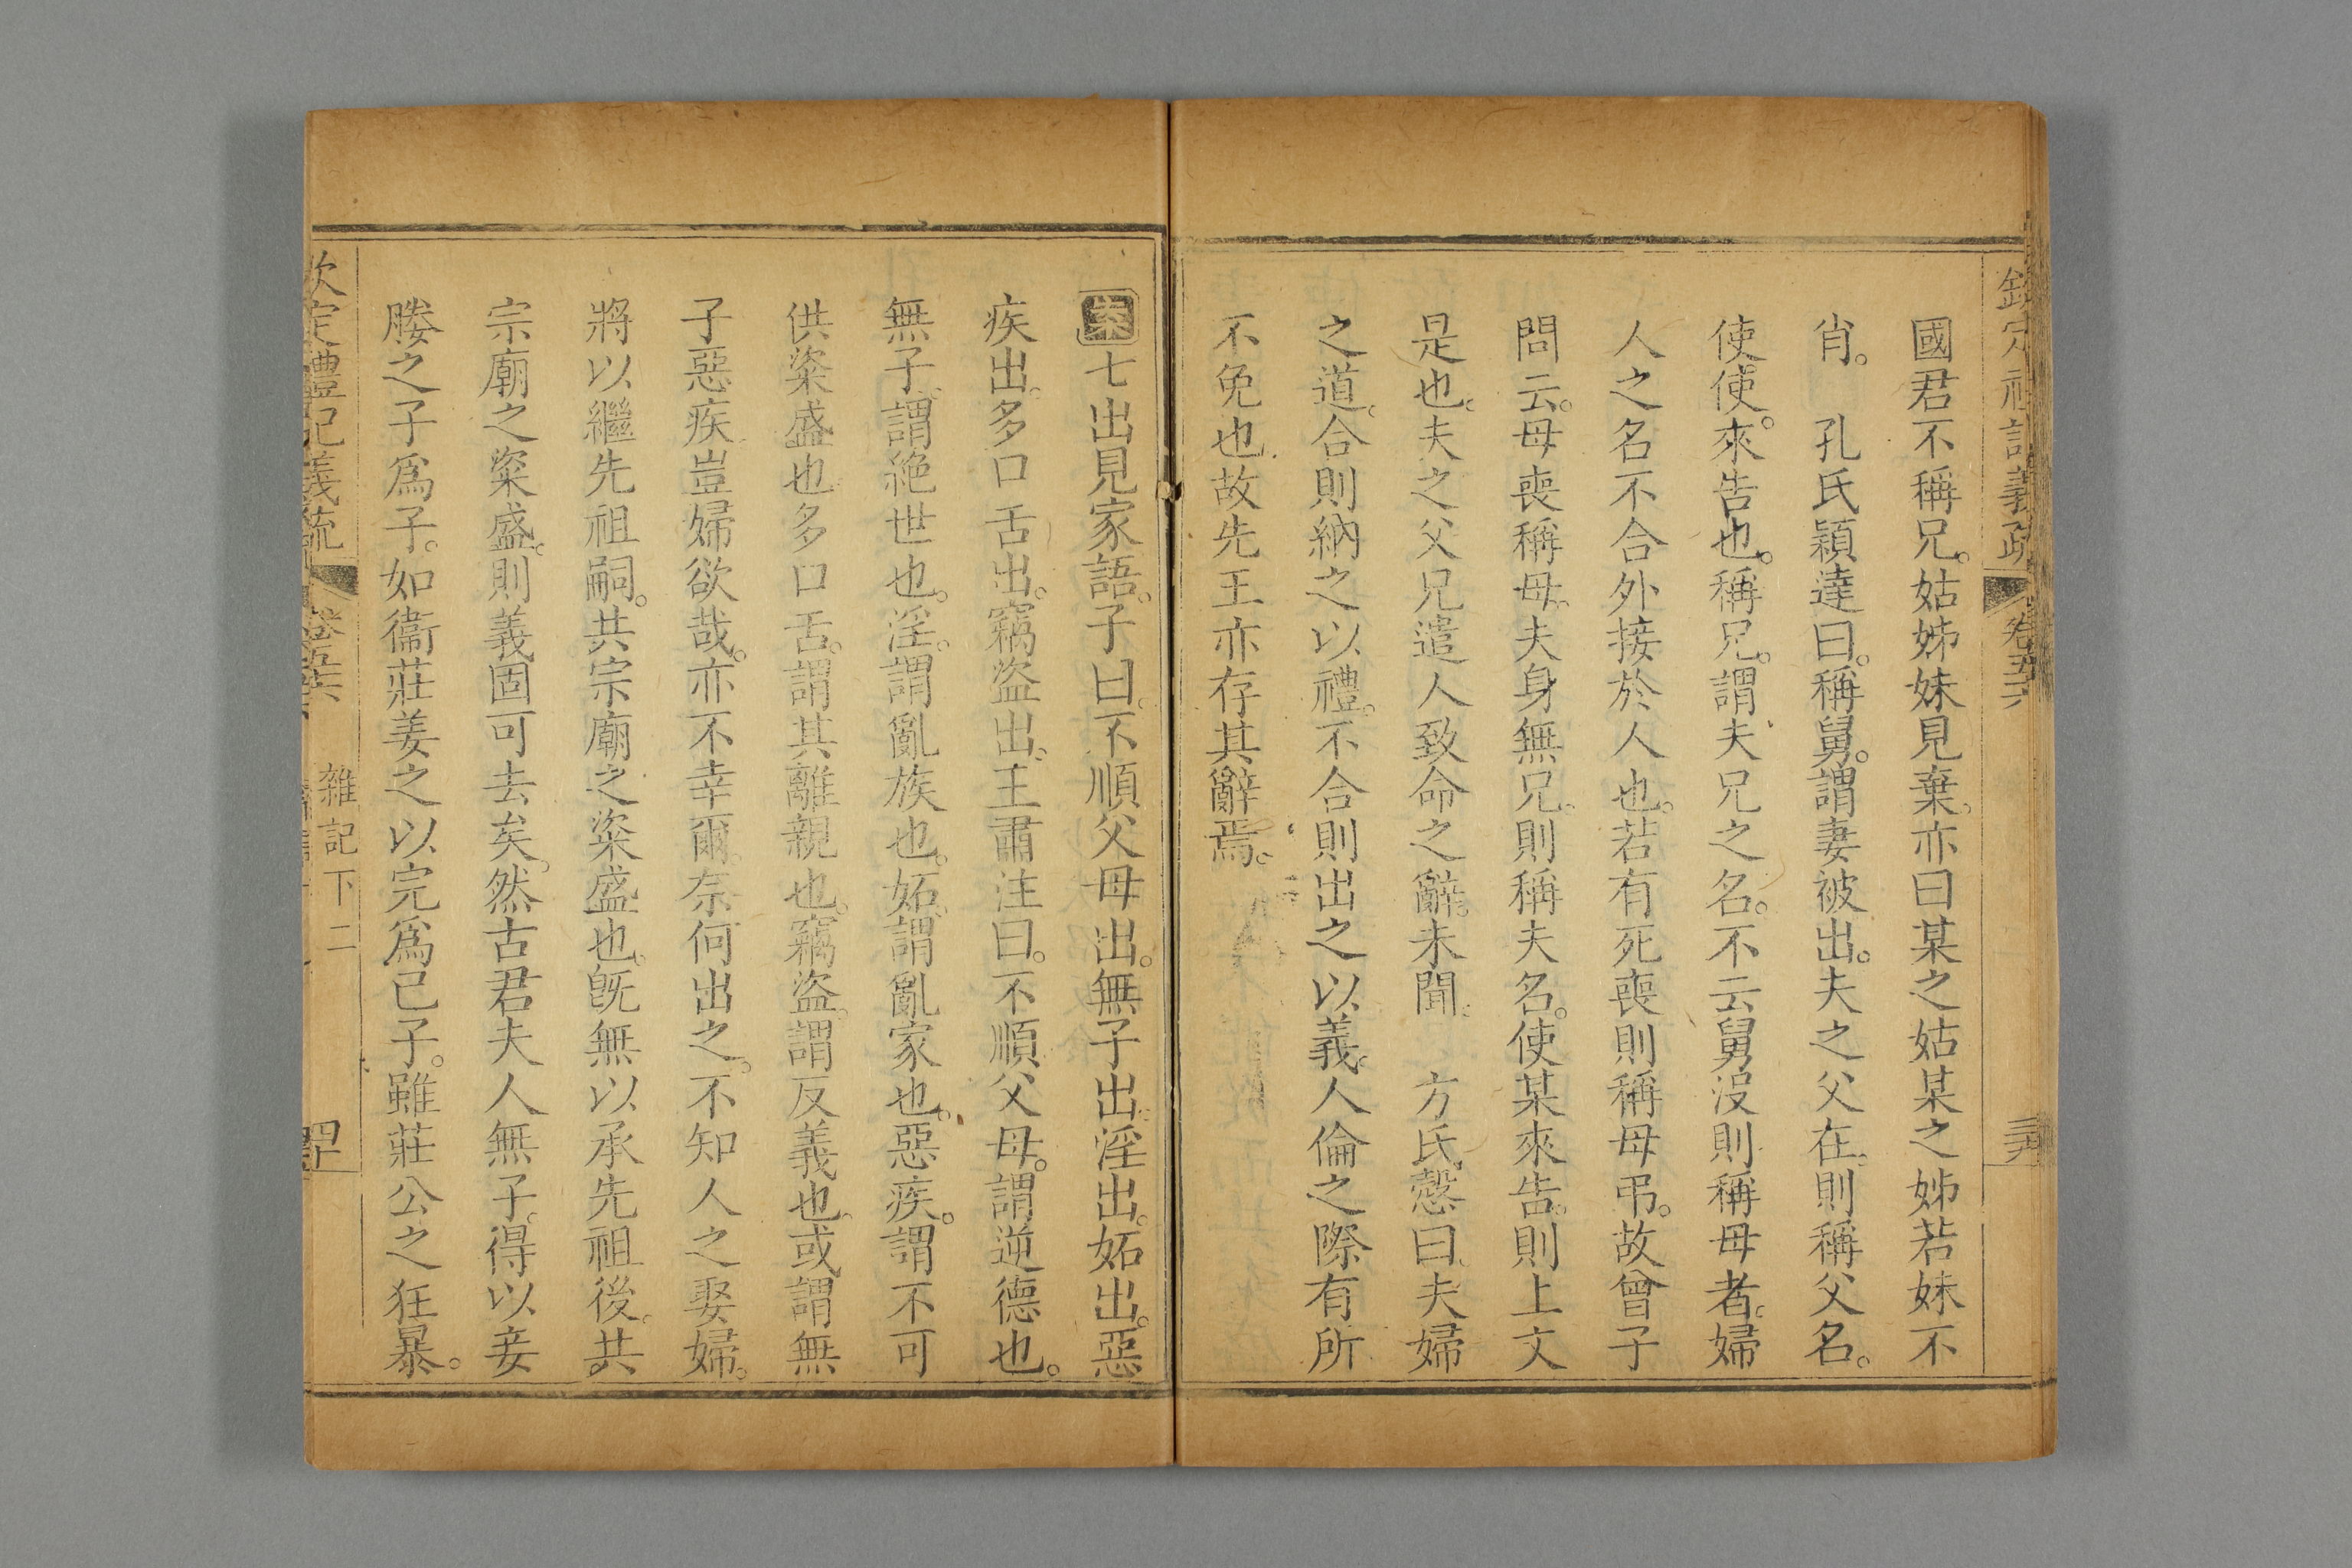 欽定禮記義疏 卷五十六
國君不稱兄。姑姊妹見棄。亦曰某之姑某之姊若妹不
肖。　孔氏穎達曰。稱舅。謂妻被出。夫之父在。則稱父名。
使使。來告也。稱兄。謂夫兄之名。不云舅沒則稱母者。婦
人之名不合外接於人也。若有死喪則稱母弔。故曾子
問云。母喪稱母。夫身無兄。則稱夫名。使某來告。則上文
是也。夫之父兄遣人致命之辭。未聞。　方氏慤曰。夫婦
之道。合則納之以禮。不合則出之以義。人倫之際有所
不免也。故先王亦存其辭焉。
案七出見家語。子曰。不順父母出。無子出。淫出。妬出。惡
疾出。多口舌出。竊盜出。王肅注曰。不順父母。謂逆德也。
無子。謂絶世也。淫。謂亂族也。妬。謂亂家也。惡疾。謂不可
供粢盛也。多口舌。謂其離親也。竊盜。謂反義也。或謂無
子惡疾豈婦欲哉。亦不幸爾。奈何出之。不知人之娶婦。
將以繼先祖嗣。共宗廟之粢盛也。旣無以承先祖後。共
宗廟之粢盛。則義固可去矣。然古君夫人無子。得以妾
媵之子爲子。如衞莊姜之以完爲己子。雖莊公之狂暴。
欽定禮記義疏 卷五十六 雜記下二